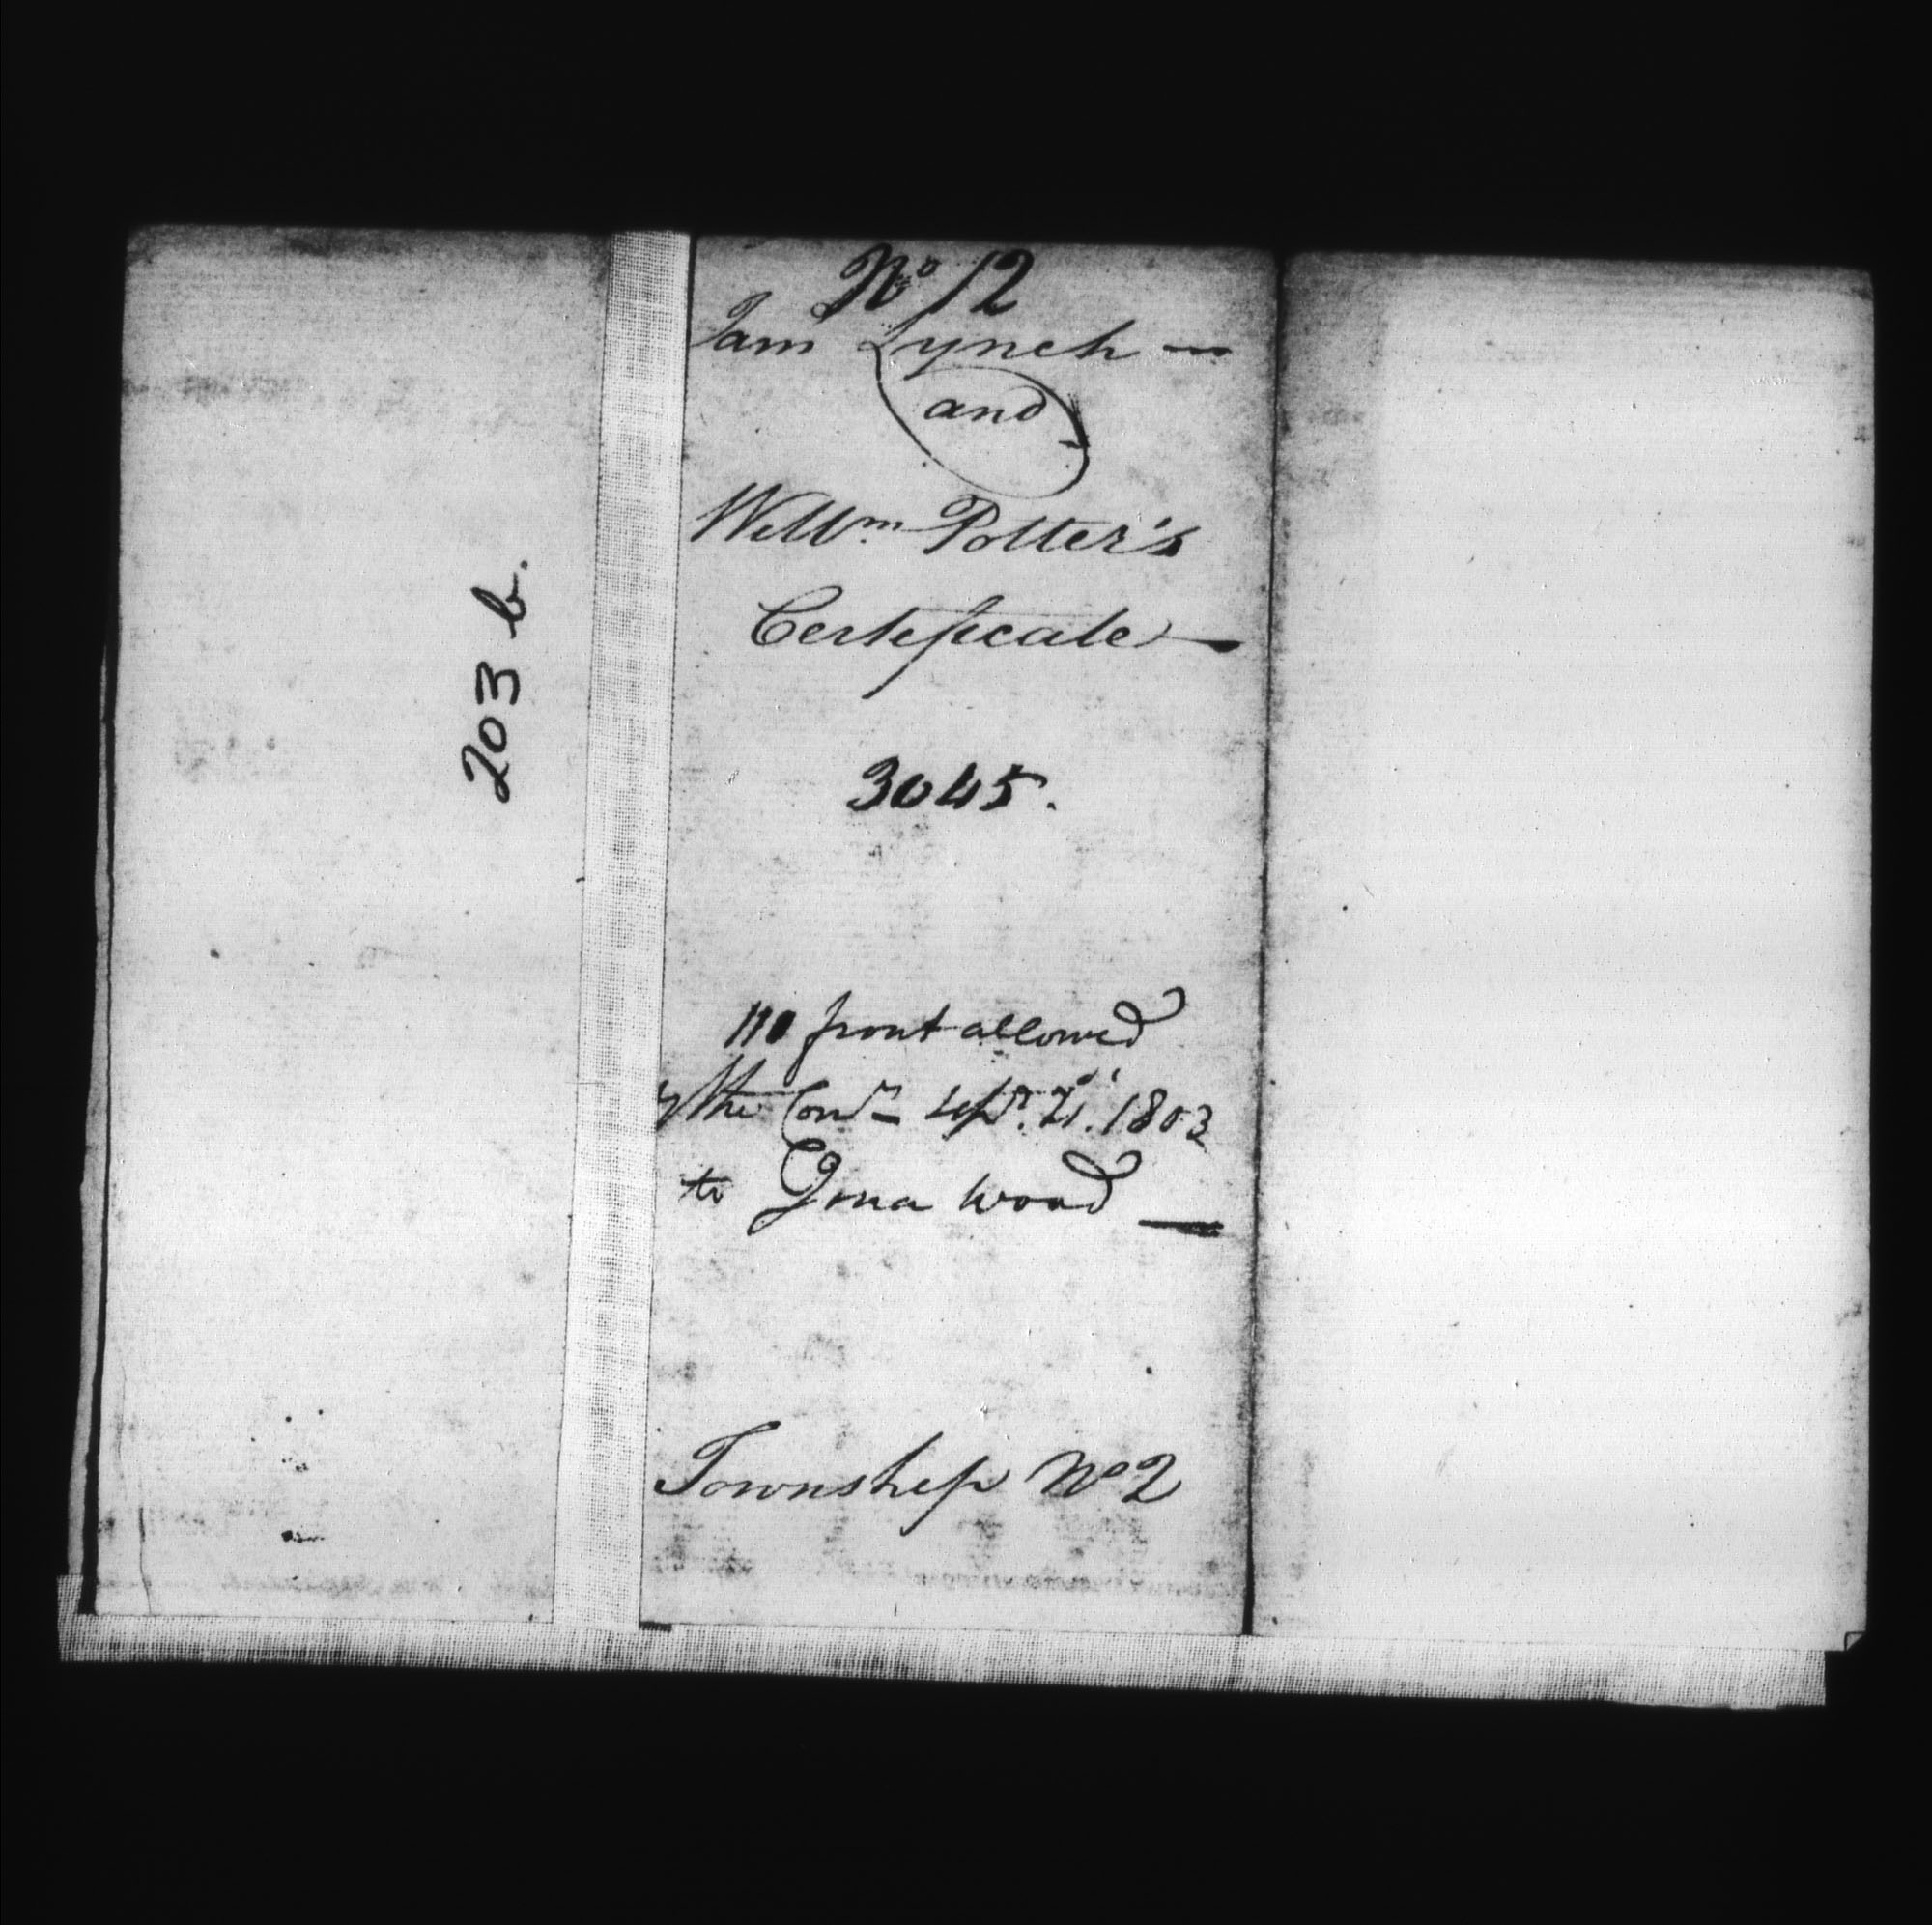 203 b.
No 12
Jam Lynch —
and
Willm Potter's
Certificate —
3045.
110 front allowed
by the Comrs Septr 21. 1803
to Jona Wood —
Township No 2